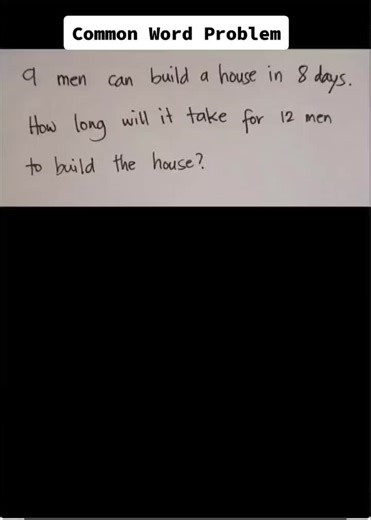 Common Word Problem
9 men can build a house in 8 days.
How long will it take for 12 men
to build the house?